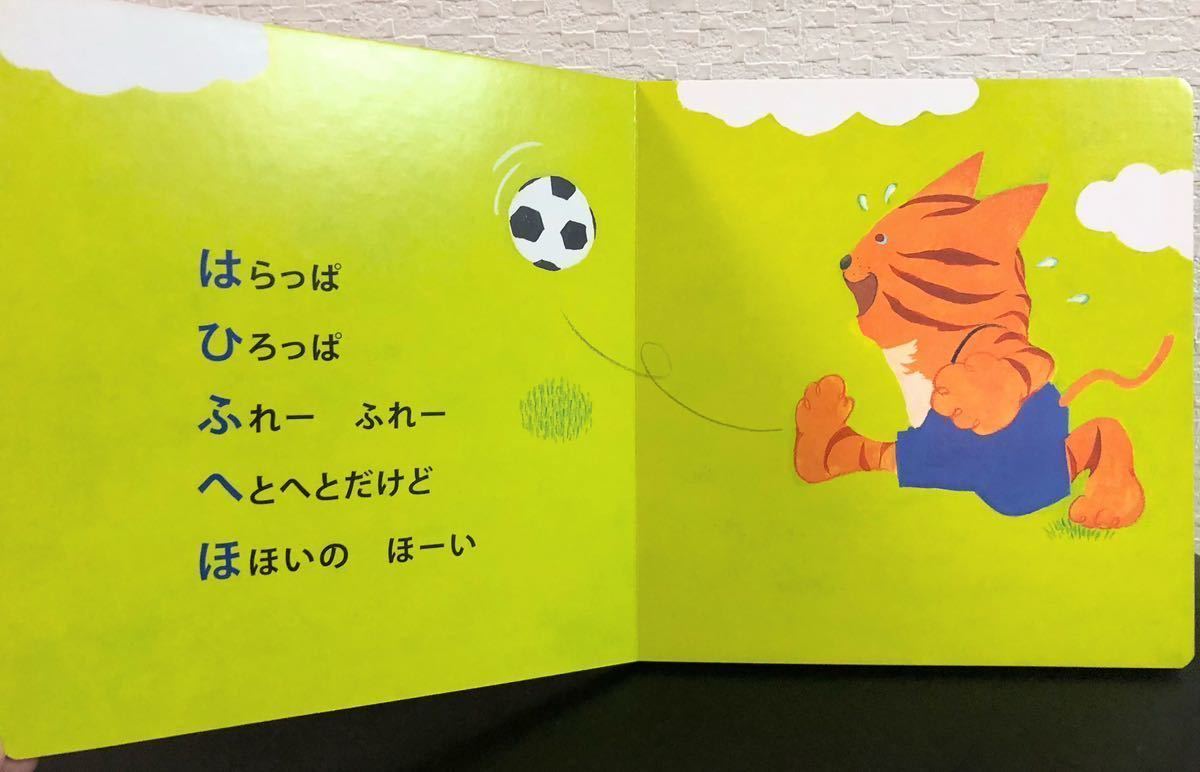 はらっぱ
ひろっぱ
ふれー　ふれー
へとへとだけど
ほほいの　ほーい